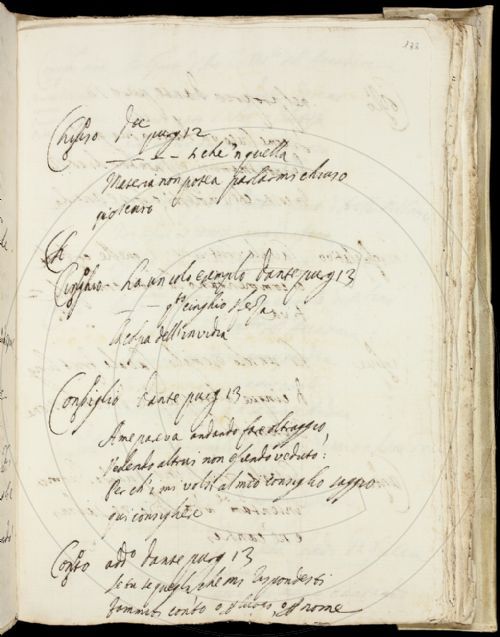 172
Chiuso Dte purg 12
— — — — si che 'n quella
Materia non potea parlarmi chiuso
più scuro
Ch
Cinghio ha un solo esemplo Dante purg 13
— — — qto cinghio sferza
La colpa dell'invidia
Consiglio Dante purg 13
A me pareva andando fare oltraggio,
Vedendo altrui non essendo veduto:
Perch'i mi volsi al mio consiglio saggio
qui consigliere
Conto Dante purg 13
Se tu se quegli che mi rispondesti
Fammiti conto o p luogo o p nome